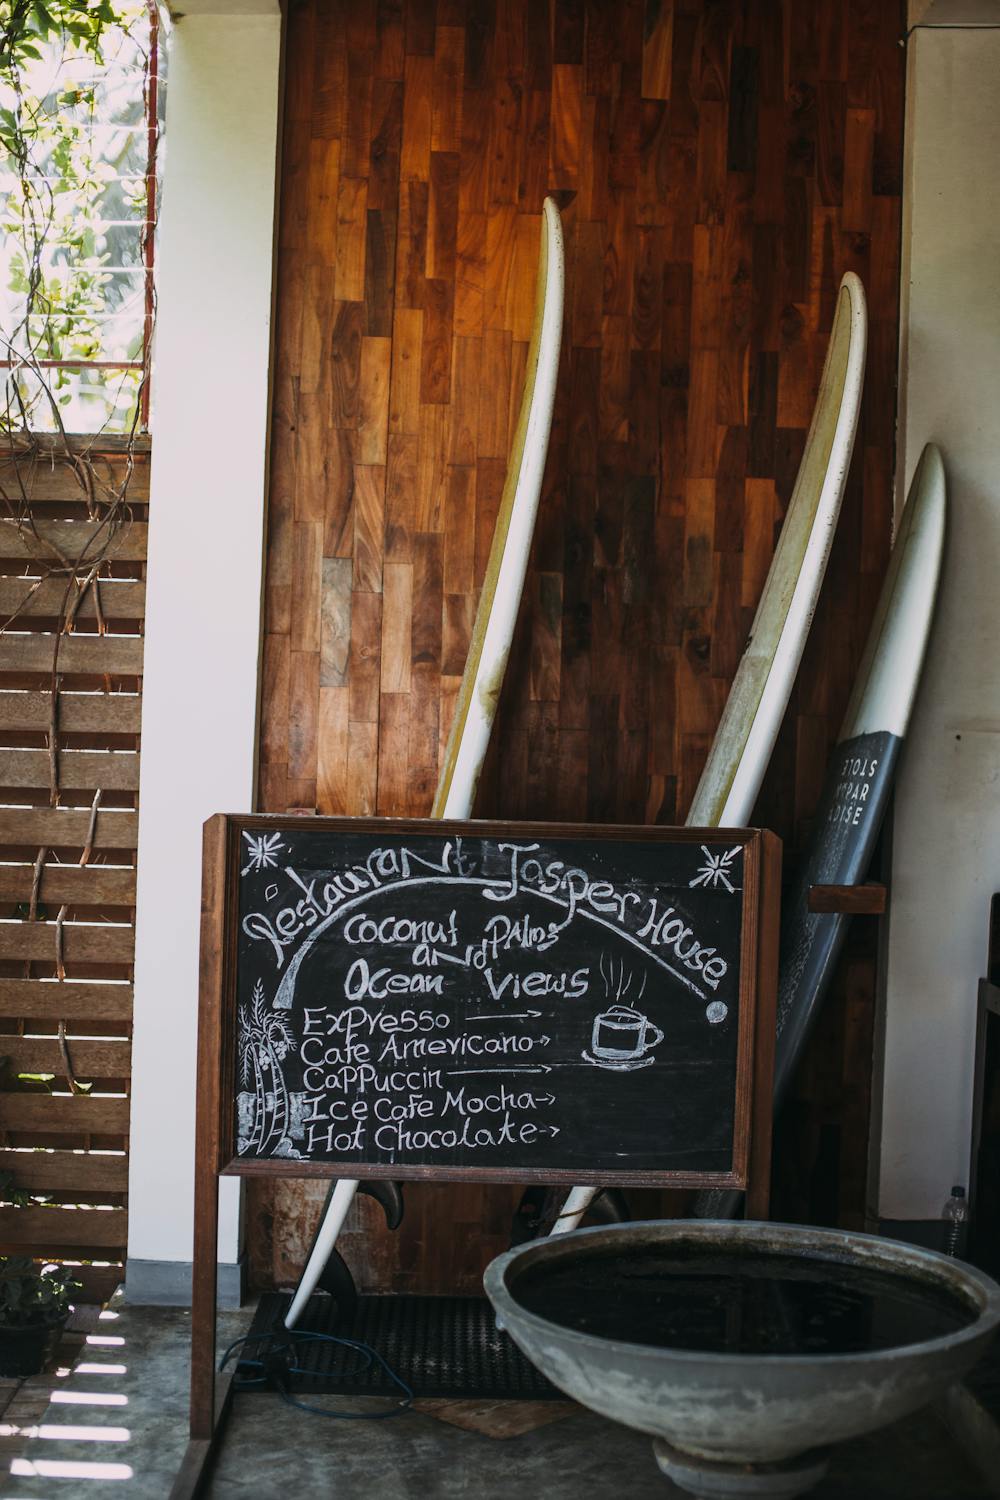 RestauraNt Jasper House
Coconut Palms
aNd
Ocean Views
ExPresso
Cafe Americano
CaPPuccin
Ice Cafe Mocha
Hot Chocolate